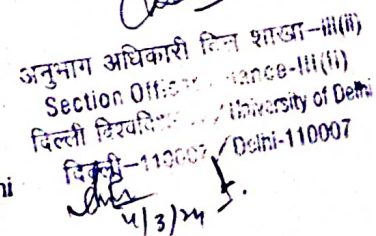 अनुभाग अधिकारी वित्त शाखा-III(ii)
Section Officer Finance-III(ii)
दिल्ली विश्वविद्यालय / University of Delhi
दिल्ली-110007 / Delhi-110007
4/3/24